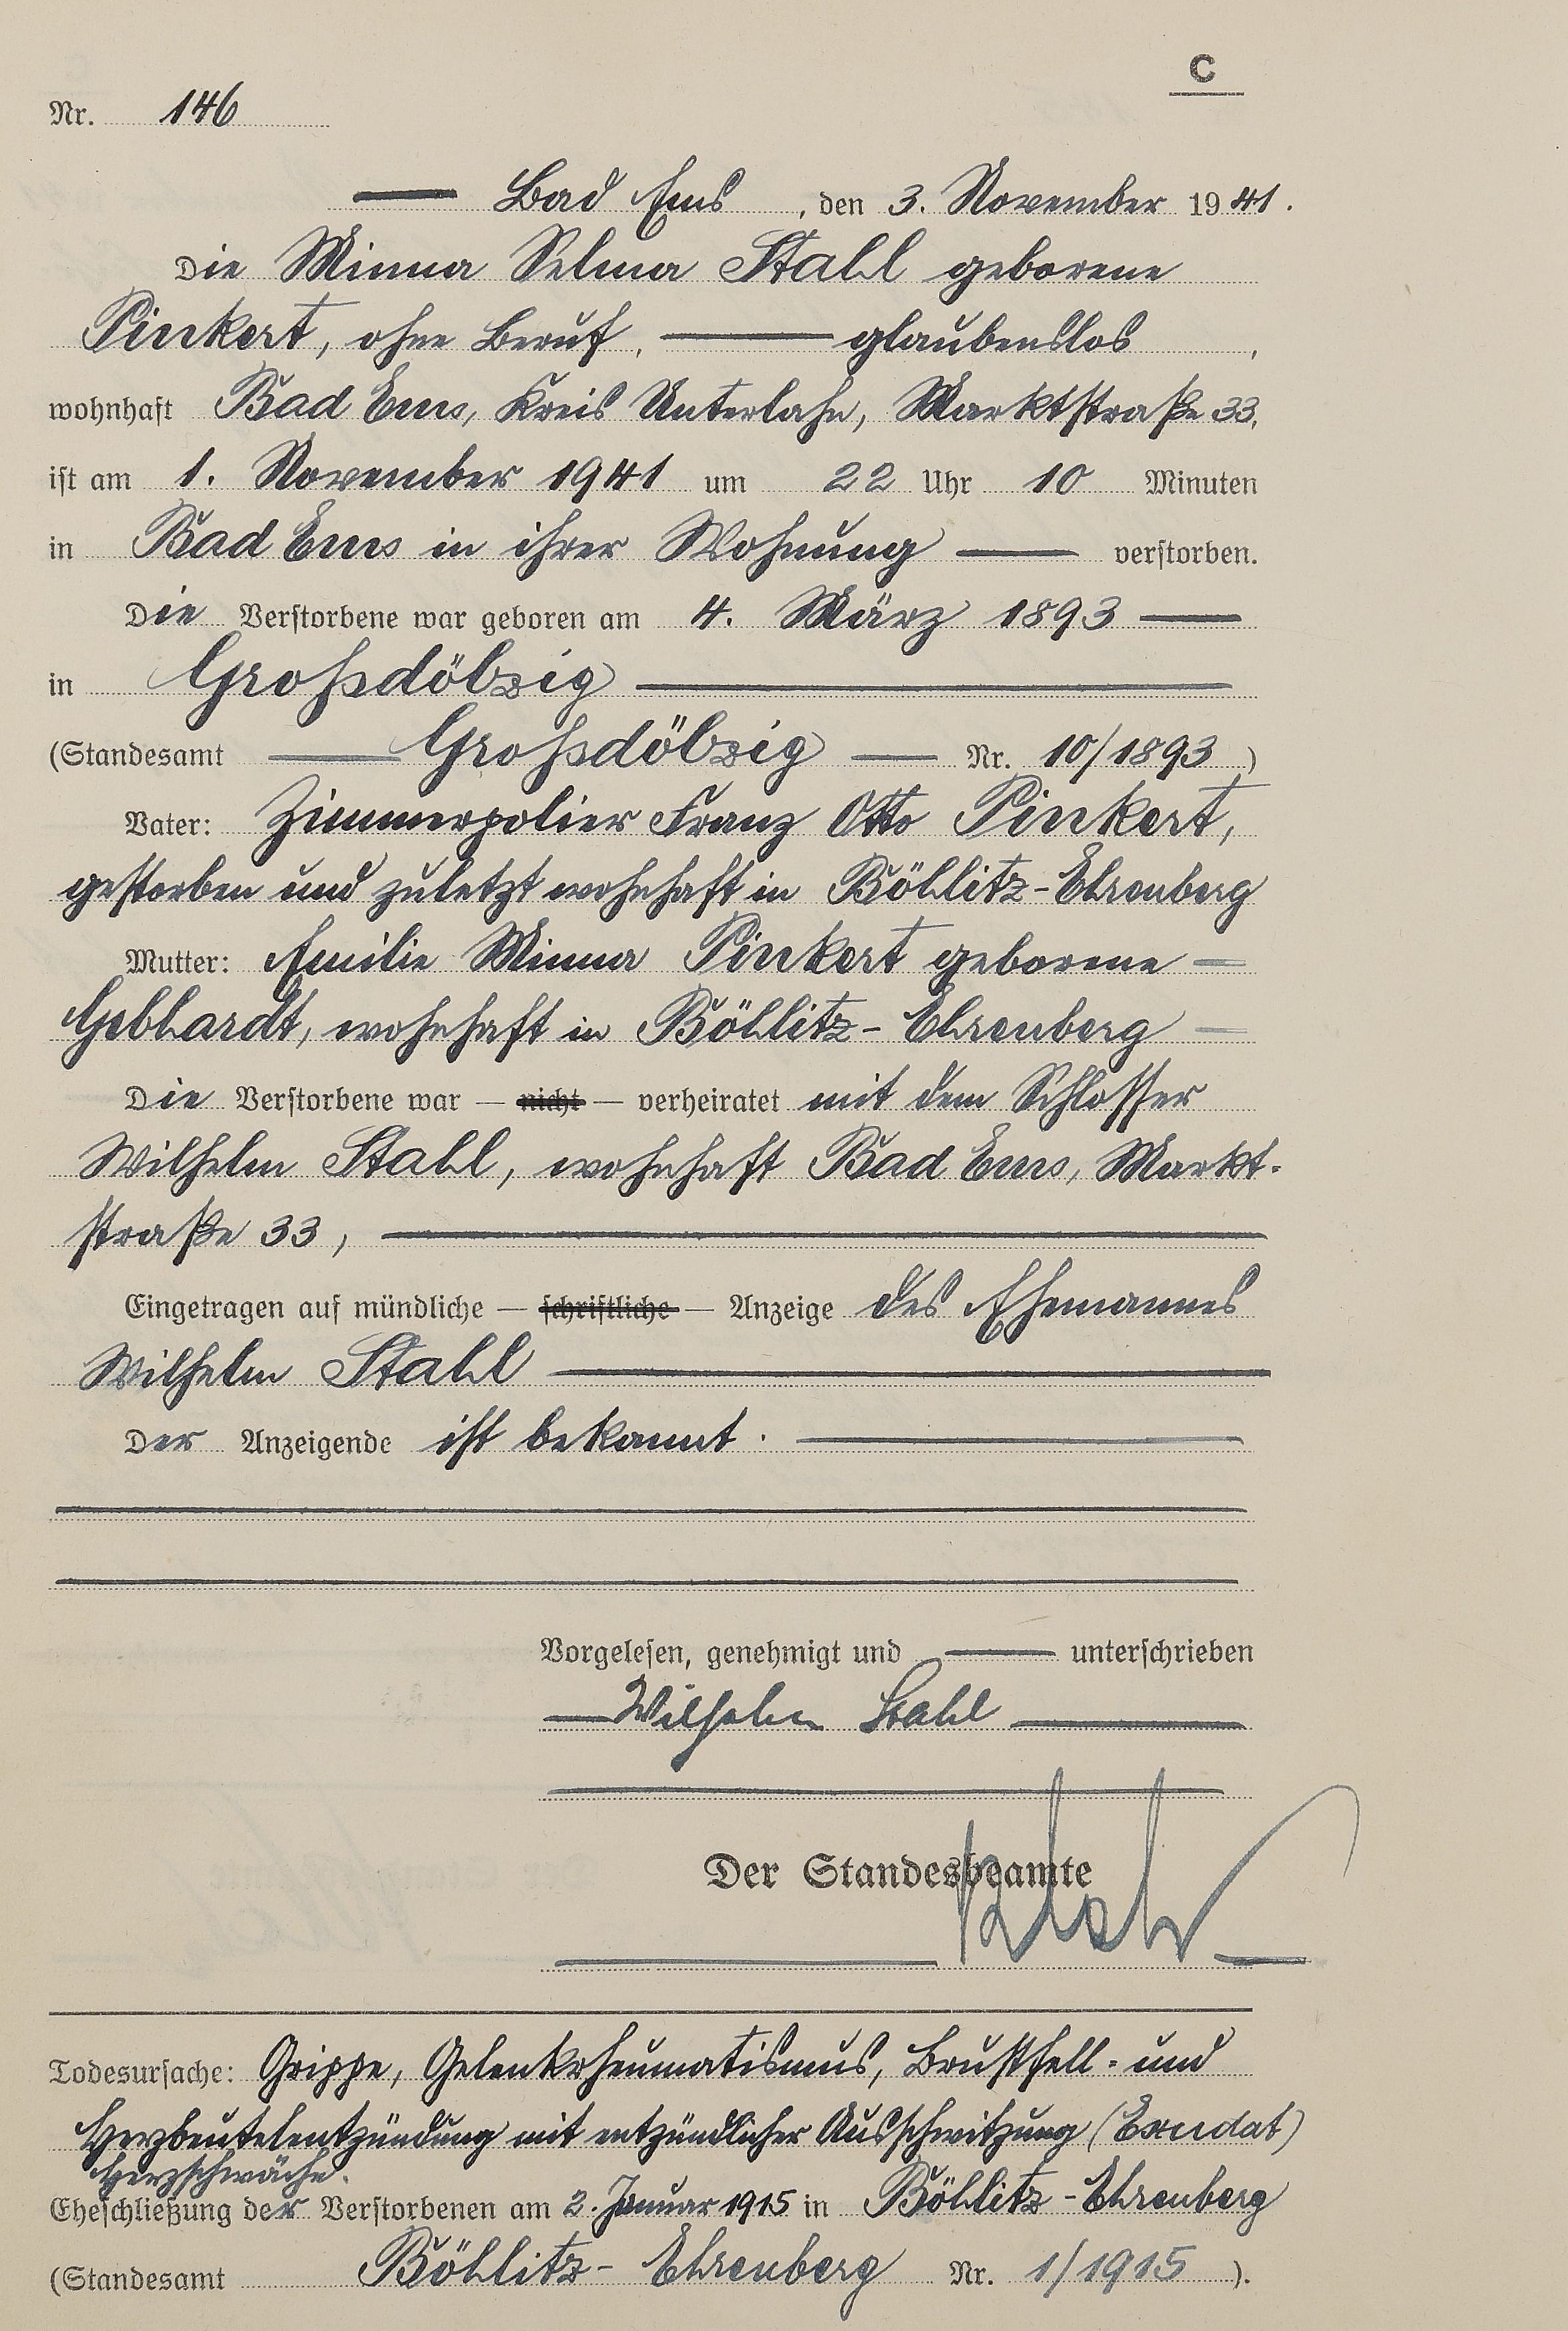 C
Nr. 146
Bad Ems, den 3. November 1941.
Die Minna Selma Stahl geborene
Pinkert, ohne Beruf, glaubenslos,
wohnhaft Bad Ems, Kreis Unterlahn, Marktstraße 33,
ist am 1. November 1941 um 22 Uhr 10 Minuten
in Bad Ems in ihrer Wohnung verstorben.
Die Verstorbene war geboren am 4. März 1893
in Großdölzig
(Standesamt Großdölzig Nr. 10/1893)
Vater: Zimmerpolier Franz Otto Pinkert,
gestorben und zuletzt wohnhaft in Böhlitz-Ehrenberg
Mutter: Emilie Minna Pinkert geborene
Gebhardt, wohnhaft in Böhlitz-Ehrenberg
Die Verstorbene war — nicht — verheiratet mit dem Schlosser
Wilhelm Stahl, wohnhaft Bad Ems, Markt-
straße 33,
Eingetragen auf mündliche — schriftliche — Anzeige des Ehemannes
Wilhelm Stahl
Der Anzeigende ist bekannt.
Vorgelesen, genehmigt und unterschrieben
Wilhelm Stahl
Der Standesbeamte
Todesursache: Grippe, Gelenkrheumatismus, Brustfell- und
Herzbeutelentzündung mit entzündlicher Ausschwitzung (Exudat)
Herzschwäche.
Eheschließung der Verstorbenen am 2. Januar 1915 in Böhlitz-Ehrenberg
(Standesamt Böhlitz-Ehrenberg Nr. 1/1915).